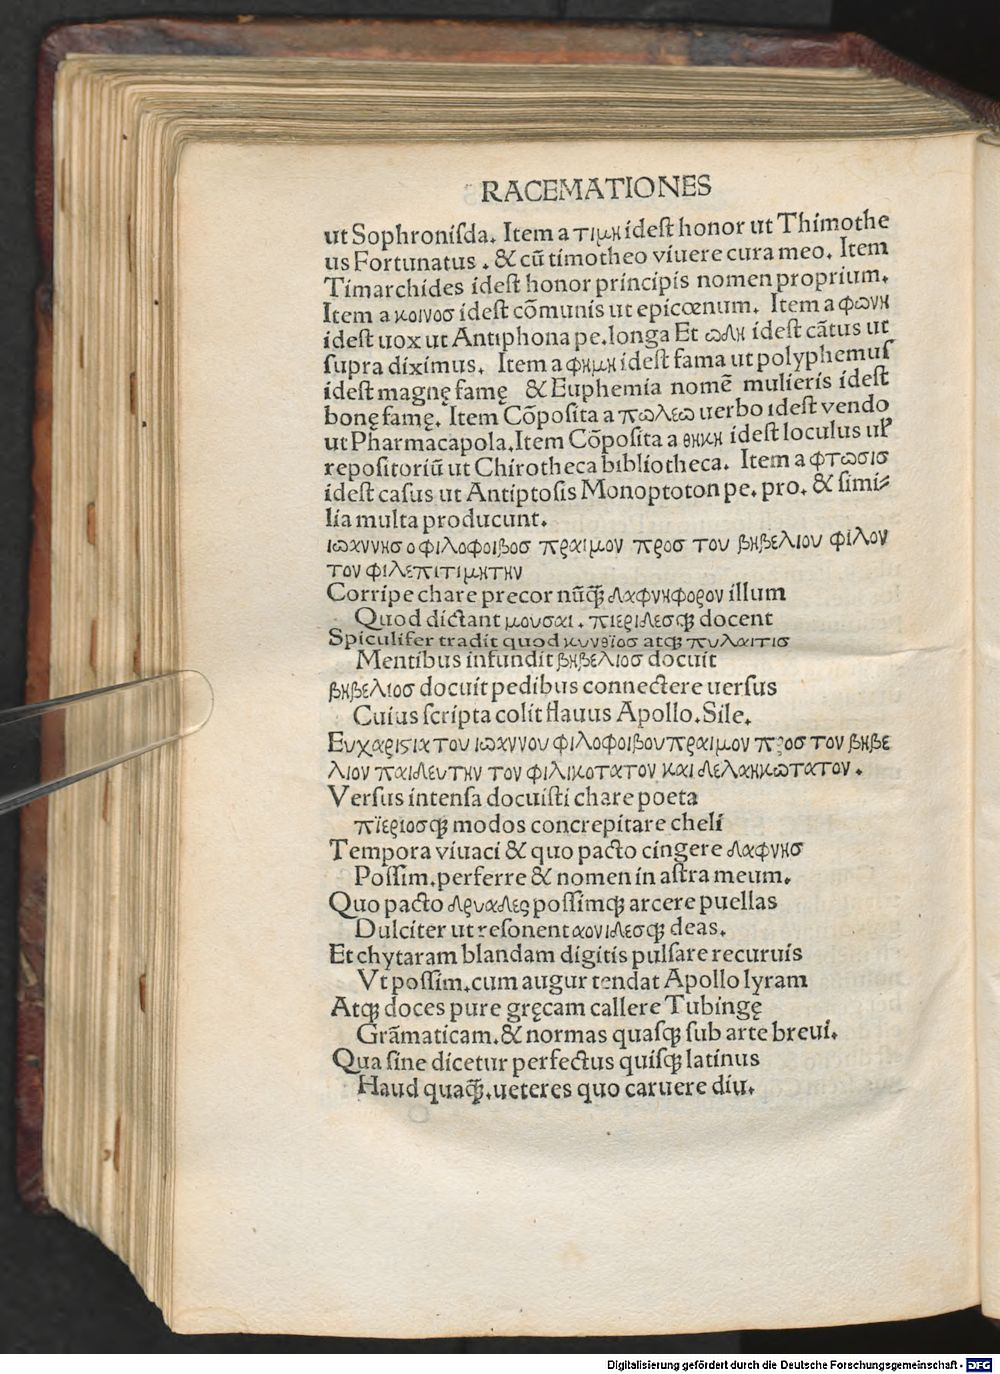 RACEMATIONES
ut Sophroniſda. Item a τιμη ideſt honor ut Thimothe
us Fortunatus . & cũ timotheo viuere cura meo. Item
Timarchides ideſt honor principis nomen proprium.
Item a κοινοσ ideſt cõmunis ut epicœnum. Item a φωνη
ideſt uox ut Antiphona pe.longa Et ωδη ideſt cãtus ut
ſupra diximus. Item a φημη ideſt fama ut polyphemuſ
ideſt magnę famę & Euphemia nomẽ mulieris ideſt
bonę famę. Item Cõpoſita a πωλεω uerbo ideſt vendo
ut Pharmacapola.Item Cõpoſita a θηκη ideſt loculus ul̕
repoſitoriũ ut Chirotheca bibliotheca. Item a φτωσισ
ideſt caſus ut Antiptoſis Monoptoton pe. pro. & ſimi⸗
lia multa producunt.
ιωαννησ ο φιλοφοιβοσ πραιμον προσ του βηβελιου φιλον
τον φιλεπιτιμητην
Corripe chare precor nũꝙ̃ δαφνηφορον illum
Quod dictant μουσαι . πιεριδεσꝗ docent
Spiculifer tradit quod κυνθϊος atꝗ πυλαιτισ
Mentibus infundit βηβελιοσ docuit
βηβελιοσ docuit pedibus connectere uerſus
Cuius ſcripta colit flauus Apollo.Sile.
Ευχαριϛια του ιωαννου φιλοφοιβου πραιμον προσ τον βηβε
λιον παιδευτην τον φιλικοτατον και δεδαηκωτατον .
Verſus intenſa docuiſti chare poeta
πϊεριοσꝗ modos concrepitare cheli
Tempora viuaci & quo pacto cingere δαφνησ
Poſſim.perferre & nomen in aſtra meum.
Quo pacto δρυαδες poſſimꝗ arcere puellas
Dulciter ut reſonent αονιδεσꝗ deas.
Et chytaram blandam digitis pulſare recuruis
Vt poſſim.cum augur tendat Apollo lyram
Atꝗ doces pure gręcam callere Tubingę
Grãmaticam.& normas quaſꝗ ſub arte breui.
Qua ſine dicetur perfectus quiſꝗ latinus
Haud quaꝙ̃.ueteres quo caruere diu.
Digitalisierung gefördert durch die Deutsche Forschungsgemeinschaft - DFG